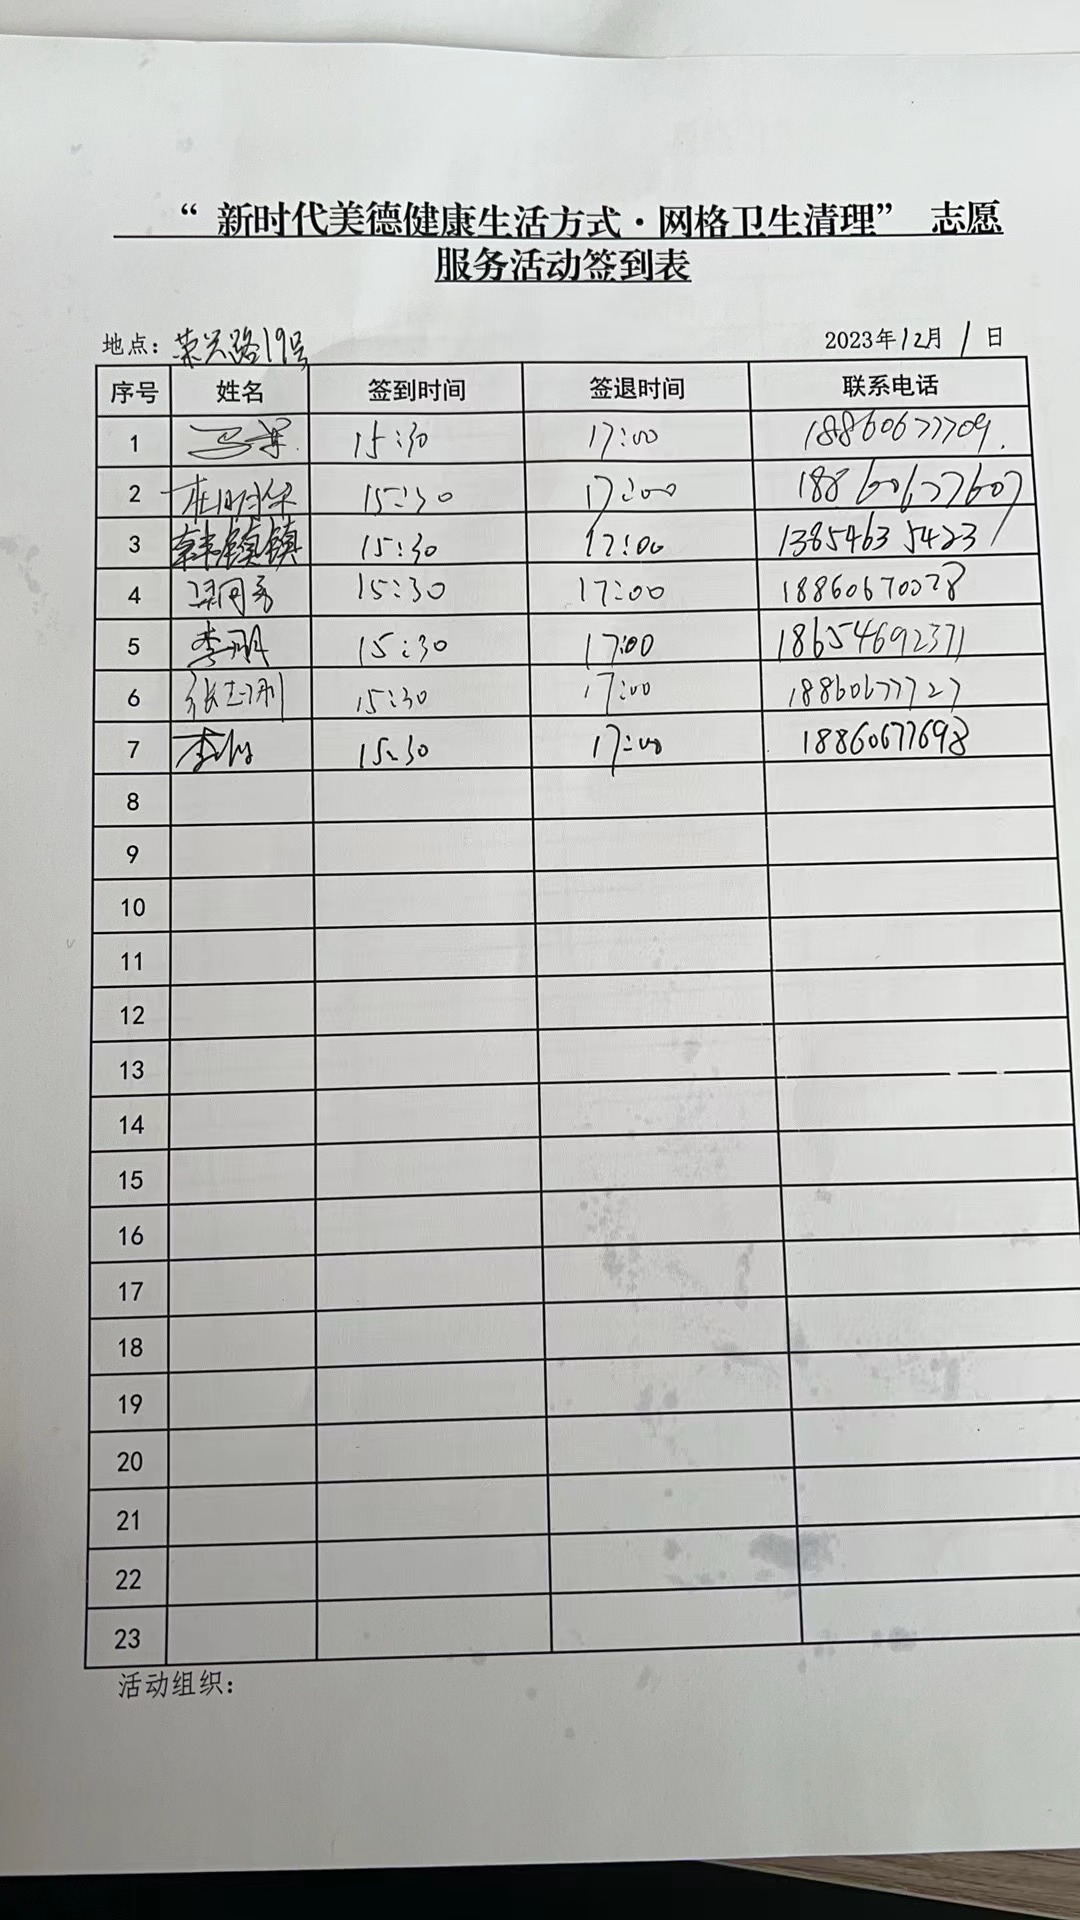 “ 新时代美德健康生活方式·网格卫生清理” 志愿
服务活动签到表
地点：荣兴路19号 2023年12月1日
序号 姓名 签到时间 签退时间 联系电话
1 15:30 17:00 18860677709
2 15:30 17:00 18860677607
3 韩镇镇 15:30 17:00 13854635423
4 15:30 17:00 18860670078
5 李明 15:30 17:00 18654692371
6 张志刚 15:30 17:00 18860677727
7 15:30 17:00 18860677698
8
9
10
11
12
13
14
15
16
17
18
19
20
21
22
23
活动组织：